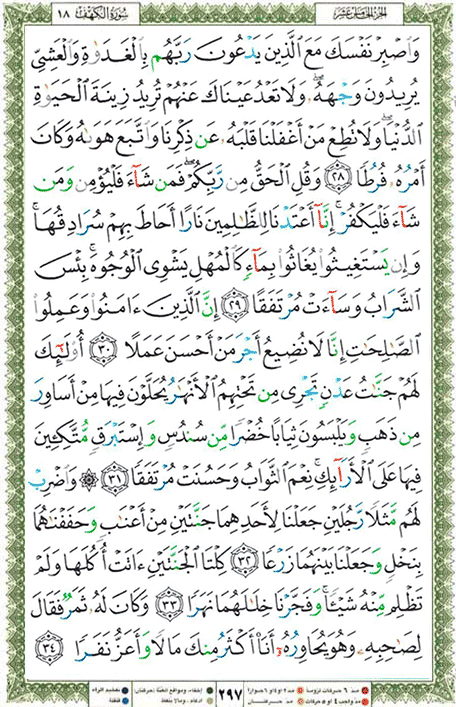 سُورَةُ الكَهْفِ ١٨
الجزء الخامس عشر
وَٱصْبِرْ نَفْسَكَ مَعَ ٱلَّذِينَ يَدْعُونَ رَبَّهُم بِٱلْغَدَوٰةِ وَٱلْعَشِىِّ
يُرِيدُونَ وَجْهَهُۥ ۖ وَلَا تَعْدُ عَيْنَاكَ عَنْهُمْ تُرِيدُ زِينَةَ ٱلْحَيَوٰةِ
ٱلدُّنْيَا ۖ وَلَا تُطِعْ مَنْ أَغْفَلْنَا قَلْبَهُۥ عَن ذِكْرِنَا وَٱتَّبَعَ هَوَىٰهُ وَكَانَ
أَمْرُهُۥ فُرُطًا ٢٨ وَقُلِ ٱلْحَقُّ مِن رَّبِّكُمْ ۖ فَمَن شَآءَ فَلْيُؤْمِن وَمَن
شَآءَ فَلْيَكْفُرْ ۚ إِنَّآ أَعْتَدْنَا لِلظَّـٰلِمِينَ نَارًا أَحَاطَ بِهِمْ سُرَادِقُهَا ۚ
وَإِن يَسْتَغِيثُوا۟ يُغَاثُوا۟ بِمَآءٍ كَٱلْمُهْلِ يَشْوِى ٱلْوُجُوهَ ۚ بِئْسَ
ٱلشَّرَابُ وَسَآءَتْ مُرْتَفَقًا ٢٩ إِنَّ ٱلَّذِينَ ءَامَنُوا۟ وَعَمِلُوا۟
ٱلصَّـٰلِحَـٰتِ إِنَّا لَا نُضِيعُ أَجْرَ مَنْ أَحْسَنَ عَمَلًا ٣٠ أُو۟لَـٰٓئِكَ
لَهُمْ جَنَّـٰتُ عَدْنٍ تَجْرِى مِن تَحْتِهِمُ ٱلْأَنْهَـٰرُ يُحَلَّوْنَ فِيهَا مِنْ أَسَاوِرَ
مِن ذَهَبٍ وَيَلْبَسُونَ ثِيَابًا خُضْرًا مِّن سُندُسٍ وَإِسْتَبْرَقٍ مُّتَّكِـِٔينَ
فِيهَا عَلَى ٱلْأَرَآئِكِ ۚ نِعْمَ ٱلثَّوَابُ وَحَسُنَتْ مُرْتَفَقًا ٣١ ۞ وَٱضْرِبْ
لَهُم مَّثَلًا رَّجُلَيْنِ جَعَلْنَا لِأَحَدِهِمَا جَنَّتَيْنِ مِنْ أَعْنَـٰبٍ وَحَفَفْنَـٰهُمَا
بِنَخْلٍ وَجَعَلْنَا بَيْنَهُمَا زَرْعًا ٣٢ كِلْتَا ٱلْجَنَّتَيْنِ ءَاتَتْ أُكُلَهَا وَلَمْ
تَظْلِم مِّنْهُ شَيْـًٔا ۚ وَفَجَّرْنَا خِلَـٰلَهُمَا نَهَرًا ٣٣ وَكَانَ لَهُۥ ثَمَرٌ فَقَالَ
لِصَـٰحِبِهِۦ وَهُوَ يُحَاوِرُهُۥٓ أَنَا۠ أَكْثَرُ مِنكَ مَالًا وَأَعَزُّ نَفَرًا ٣٤
٢٩٧